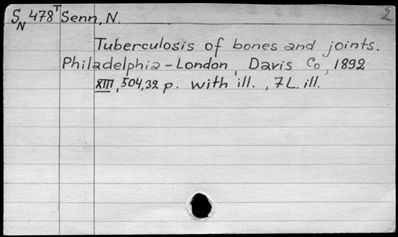 S N 478 T Senn, N. 2
Tuberculosis of bones and joints.
Philadelphia-London, Davis Co, 1892
XIII, 504,32 p. with ill., 7 L. ill.